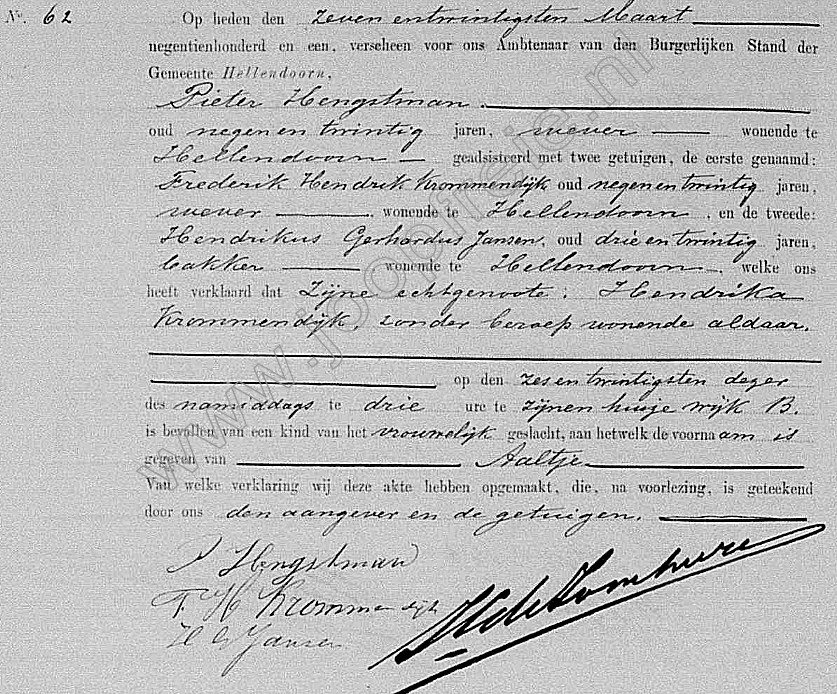 No. 62
Op heden den zeven entwintigsten Maart
negentienhonderd en een, verscheen voor ons Ambtenaar van den Burgerlijken Stand der
Gemeente Hellendoorn,
Pieter Hengstman.
oud negenentwintig jaren, wever wonende te
Hellendoorn geadsisteerd met twee getuigen, de eerste genaamd:
Frederik Hendrik Krommendijk oud negenentwintig jaren,
wever wonende te Hellendoorn, en de tweede:
Hendrikus Gerhardus Jansen, oud drieentwintig jaren,
bakker wonende te Hellendoorn, welke ons
heeft verklaard dat Zijne echtgenoote: Hendrika
Krommendijk, zonder beroep wonende aldaar.
op den zesentwintigsten dezer
des namiddags te drie ure te zijnen huize wijk B.
is bevallen van een kind van het vrouwelijk geslacht, aan hetwelk de voornaam is
gegeven van Aaltje
Van welke verklaring wij deze akte hebben opgemaakt, die, na voorlezing, is geteekend
door ons den aangever en de getuigen.
P Hengstman
F. H Krommendijk
H G Jansen
www.joopireie.nl